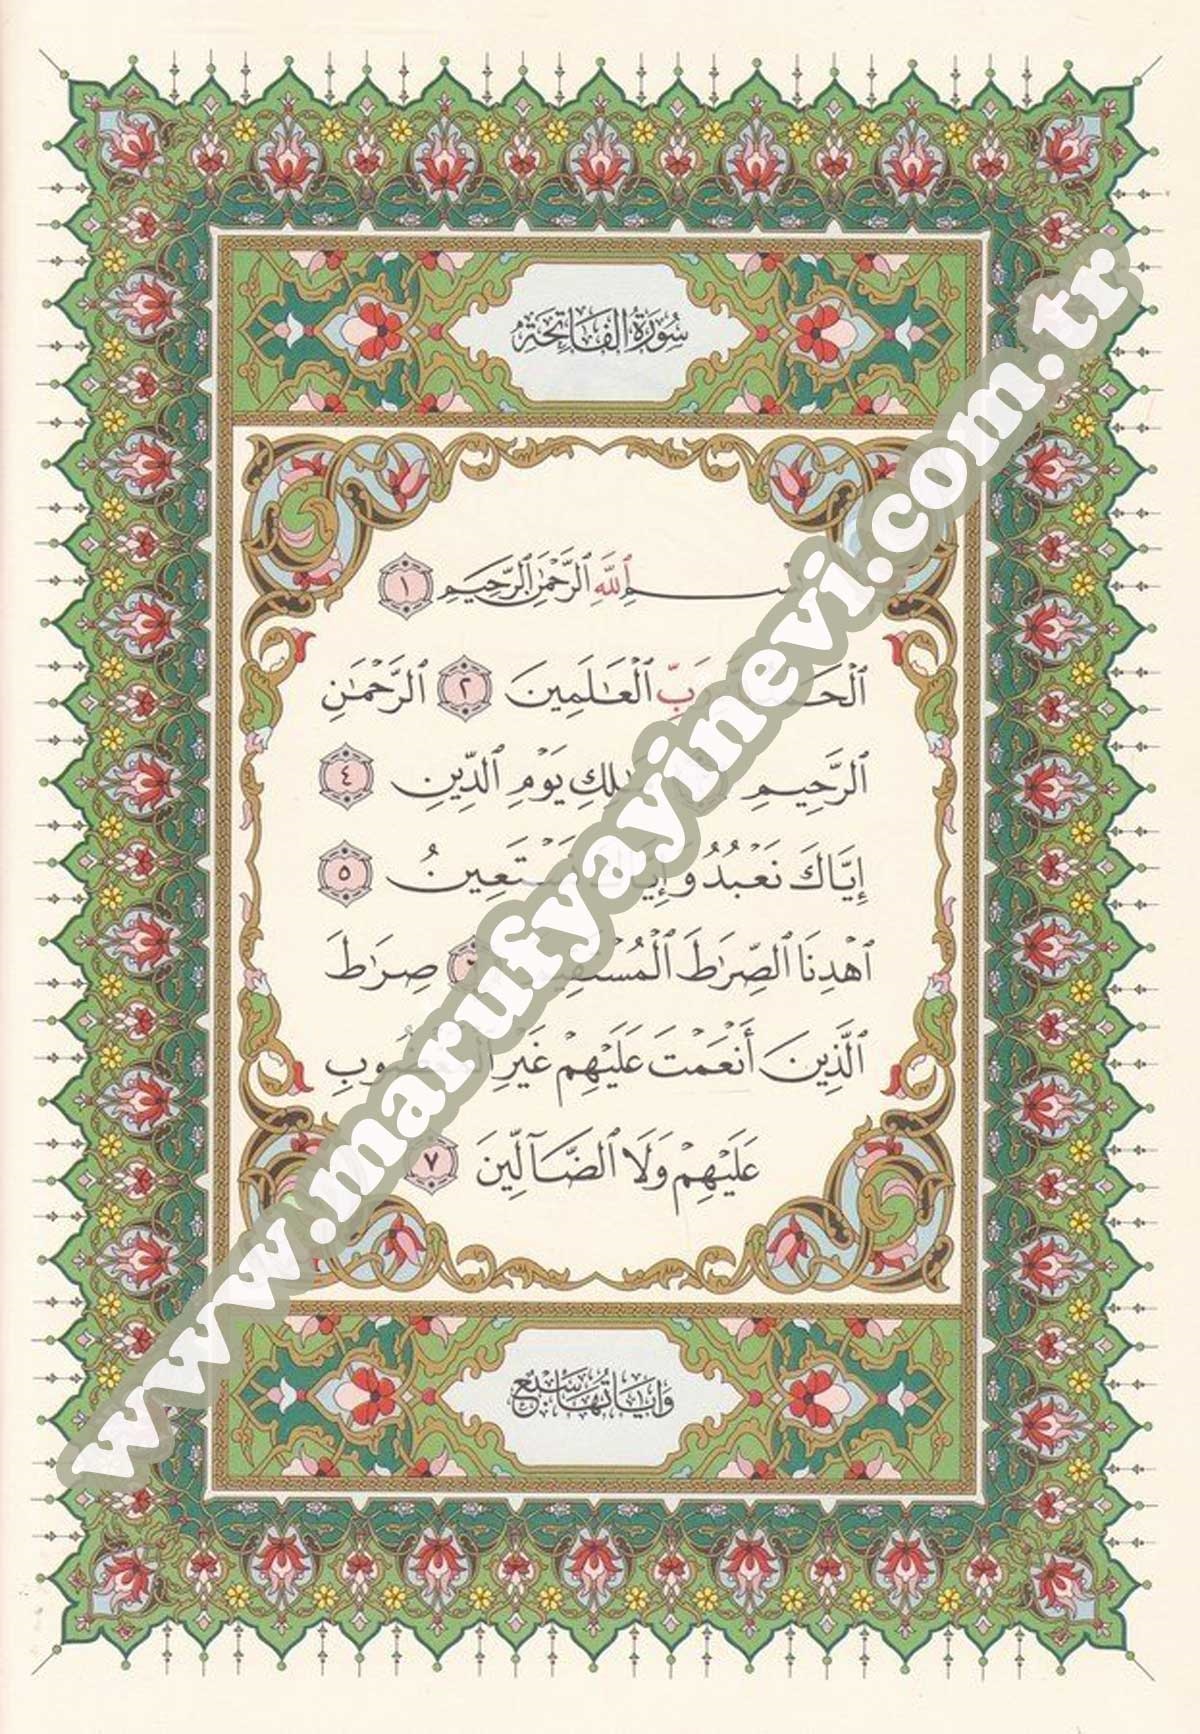 سُورَةُ الفَاتِحَةِ
ٱللَّهِ ٱلرَّحْمَٰنِ ٱلرَّحِيمِ ١
رَبِّ ٱلْعَٰلَمِينَ ٢ ٱلرَّحْمَٰنِ
ٱلرَّحِيمِ مَٰلِكِ يَوْمِ ٱلدِّينِ ٤
إِيَّاكَ نَعْبُدُ وَإِيَّاكَ نَسْتَعِينُ ٥
ٱهْدِنَا ٱلصِّرَٰطَ ٱلْمُسْتَقِيمَ ٦ صِرَٰطَ
ٱلَّذِينَ أَنْعَمْتَ عَلَيْهِمْ غَيْرِ ٱلْمَغْضُوبِ
عَلَيْهِمْ وَلَا ٱلضَّآلِّينَ ٧
وَآيَاتُهَا سَبْعٌ
www.marufyayinevi.com.tr